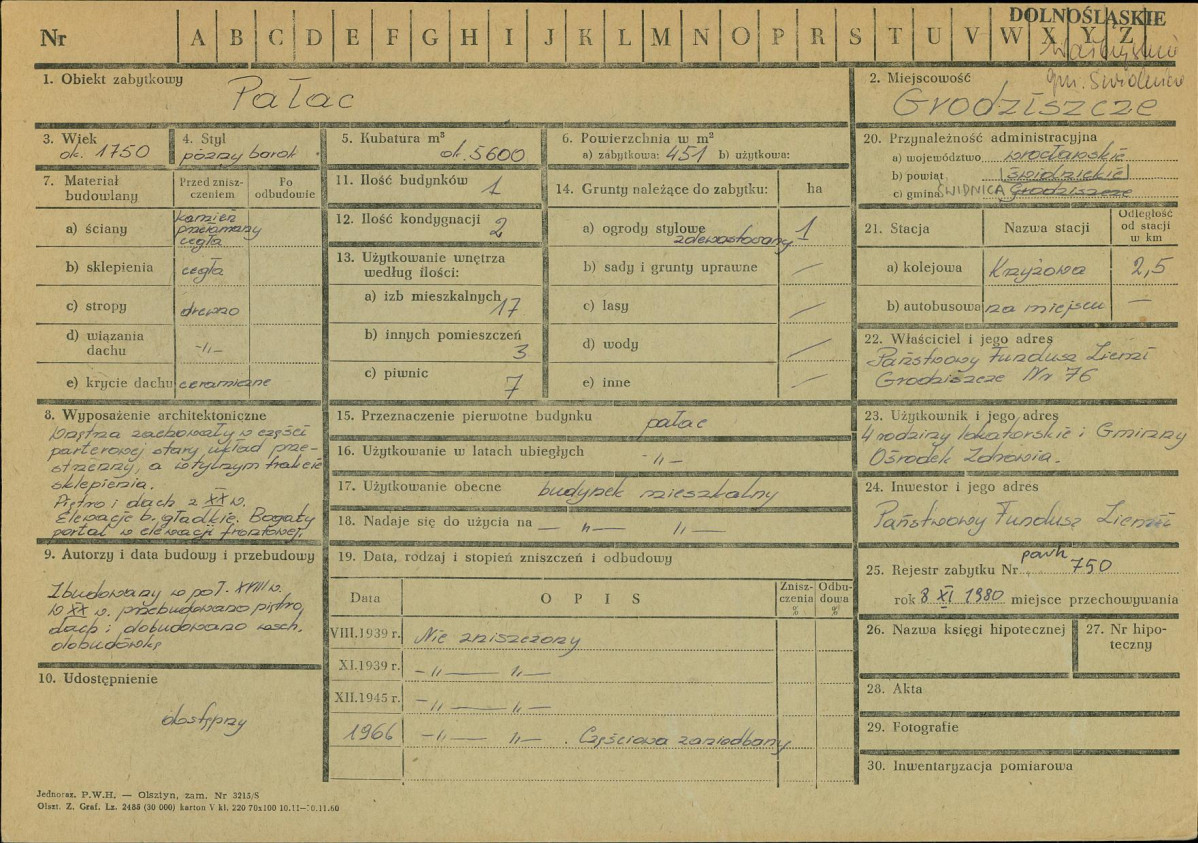 DOLNOŚLĄSKIE
Nr A B C D E F G H I J K L M N O P R S T U V W X Y Z
gm. Świdnica
1. Obiekt zabytkowy
Pałac
2. Miejscowość
Grodziszcze
3. Wiek
ok. 1750
4. Styl
późny barok
5. Kubatura m³
ok. 5600
6. Powierzchnia w m²
a) zabytkowa: 451 b) użytkowa:
20. Przynależność administracyjna
a) województwo wrocławskie
b) powiat świdnickie
c) gmina ŚWIDNICA Grodziszcze
7. Materiał budowlany
Przed zniszczeniem
Po odbudowie
a) ściany kamień przełamany cegła
b) sklepienia cegła
c) stropy drewno
d) wiązania dachu -"-
e) krycie dachu ceramiczne
11. Ilość budynków 1
12. Ilość kondygnacji 2
13. Użytkowanie wnętrza według ilości:
a) izb mieszkalnych 17
b) innych pomieszczeń 3
c) piwnic 7
14. Grunty należące do zabytku: ha
a) ogrody stylowe zdewastowany 1
b) sady i grunty uprawne —
c) lasy —
d) wody —
e) inne —
21. Stacja
Nazwa stacji
Odległość od stacji w km
a) kolejowa Krzyżowa 2,5
b) autobusowa na miejscu —
22. Właściciel i jego adres
Państwowy Fundusz Ziemi
Grodziszcze Nr 76
8. Wyposażenie architektoniczne
Wnętrza zachowały w części
parterowej stary układ prze-
strzenny, a w tylnym trakcie
sklepienia.
Piętro i dach z XX w.
Elewacje b. gładkie. Bogaty
portal w elewacji frontowej.
15. Przeznaczenie pierwotne budynku pałac
16. Użytkowanie w latach ubiegłych -"-
17. Użytkowanie obecne budynek mieszkalny
18. Nadaje się do użycia na — " — " —
23. Użytkownik i jego adres
4 rodziny lokatorskie i Gminny
Ośrodek Zdrowia.
24. Inwestor i jego adres
Państwowy Fundusz Ziemi
9. Autorzy i data budowy i przebudowy
Zbudowany w poł. XVIII w.
w XX w. przebudowano piętro,
dach i dobudowano wsch.
dobudówkę
19. Data, rodzaj i stopień zniszczeń i odbudowy
Data
OPIS
Zniszczenia %
Odbudowa %
VIII.1939 r. Nie zniszczony
XI.1939 r. -"- -"-
XII.1945 r. -"- -"-
1966 -"- -"- . Częściowo zaniedbany
25. Rejestr zabytku Nr 750
rok 8 XI 1980 miejsce przechowywania
26. Nazwa księgi hipotecznej
27. Nr hipoteczny
28. Akta
29. Fotografie
30. Inwentaryzacja pomiarowa
10. Udostępnienie
dostępny
Jednoraz. P.W.H. — Olsztyn, zam. Nr 3215/S
Olszt. Z. Graf. Lz. 2488 (30 000) karton V kl. 220 70x100 10.11—30.11.60